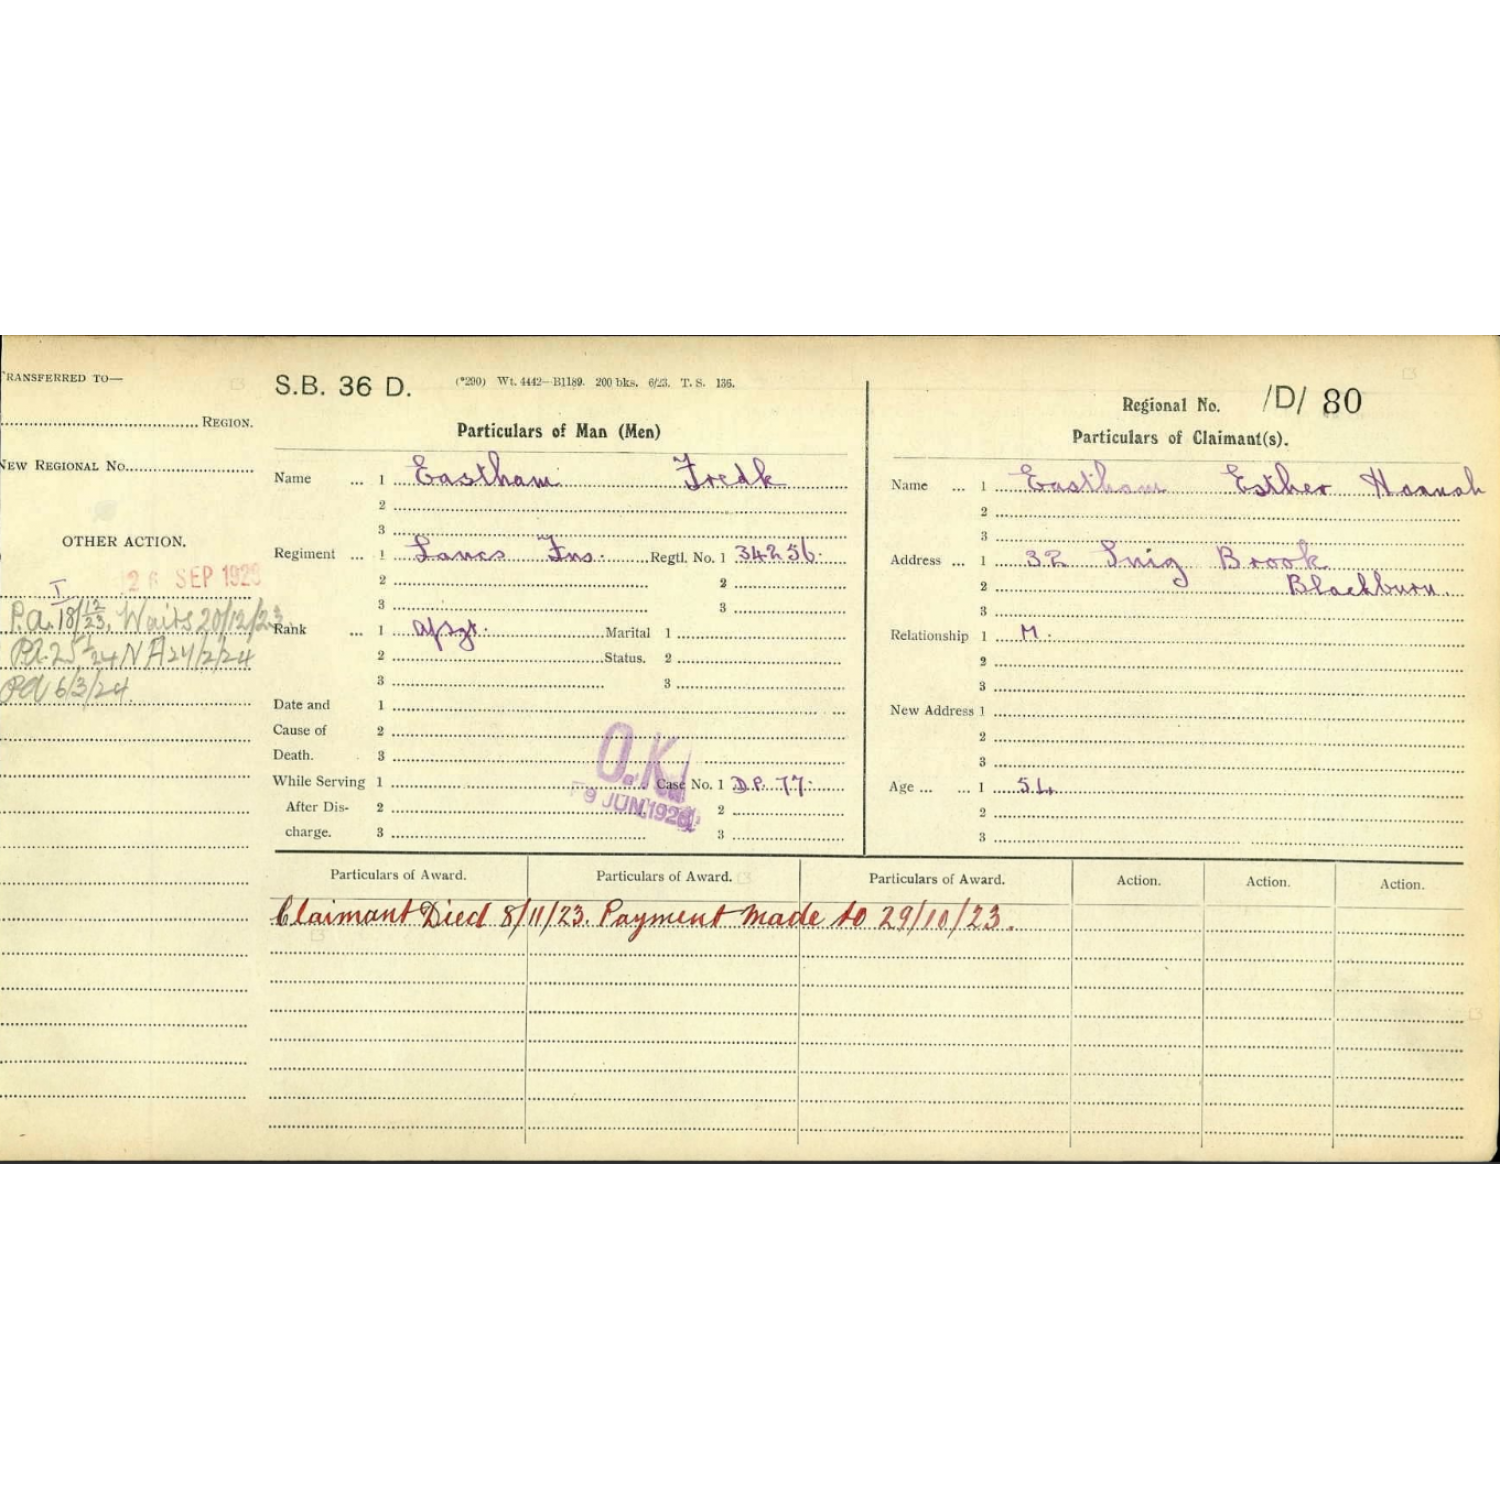 TRANSFERRED TO—
REGION.
NEW REGIONAL No.
OTHER ACTION.
26 SEP 1923
P.A. 18/12/23. Waits 20/12/23
P.A. 25 1/24 N A 24/2/24
PA 6/3/24.
S.B. 36 D.
(*290) Wt. 4442—B1189. 200 bks. 6/23. T. S. 136.
Particulars of Man (Men)
Name ... 1 Eastham Fredk
2
3
Regiment ... 1 Lancs Fus. Regtl. No. 1 34256.
2 2
3 3
Rank ... 1 A/Sgt. Marital 1
2 Status. 2
3 3
Date and 1
Cause of 2
Death. 3
While Serving 1 Case No. 1 D.P. 77.
After Dis- 2 2
charge. 3 3
O.K.
9 JUN 192
Regional No. /D/ 80
Particulars of Claimant(s).
Name ... 1 Eastham Esther Hannah
2
3
Address ... 1 32 Snig Brook
2 Blackburn.
3
Relationship 1 M.
2
3
New Address 1
2
3
Age ... ... 1 54
2
3
Particulars of Award. Particulars of Award. Particulars of Award. Action. Action. Action.
Claimant Died 8/11/23. Payment made to 29/10/23.